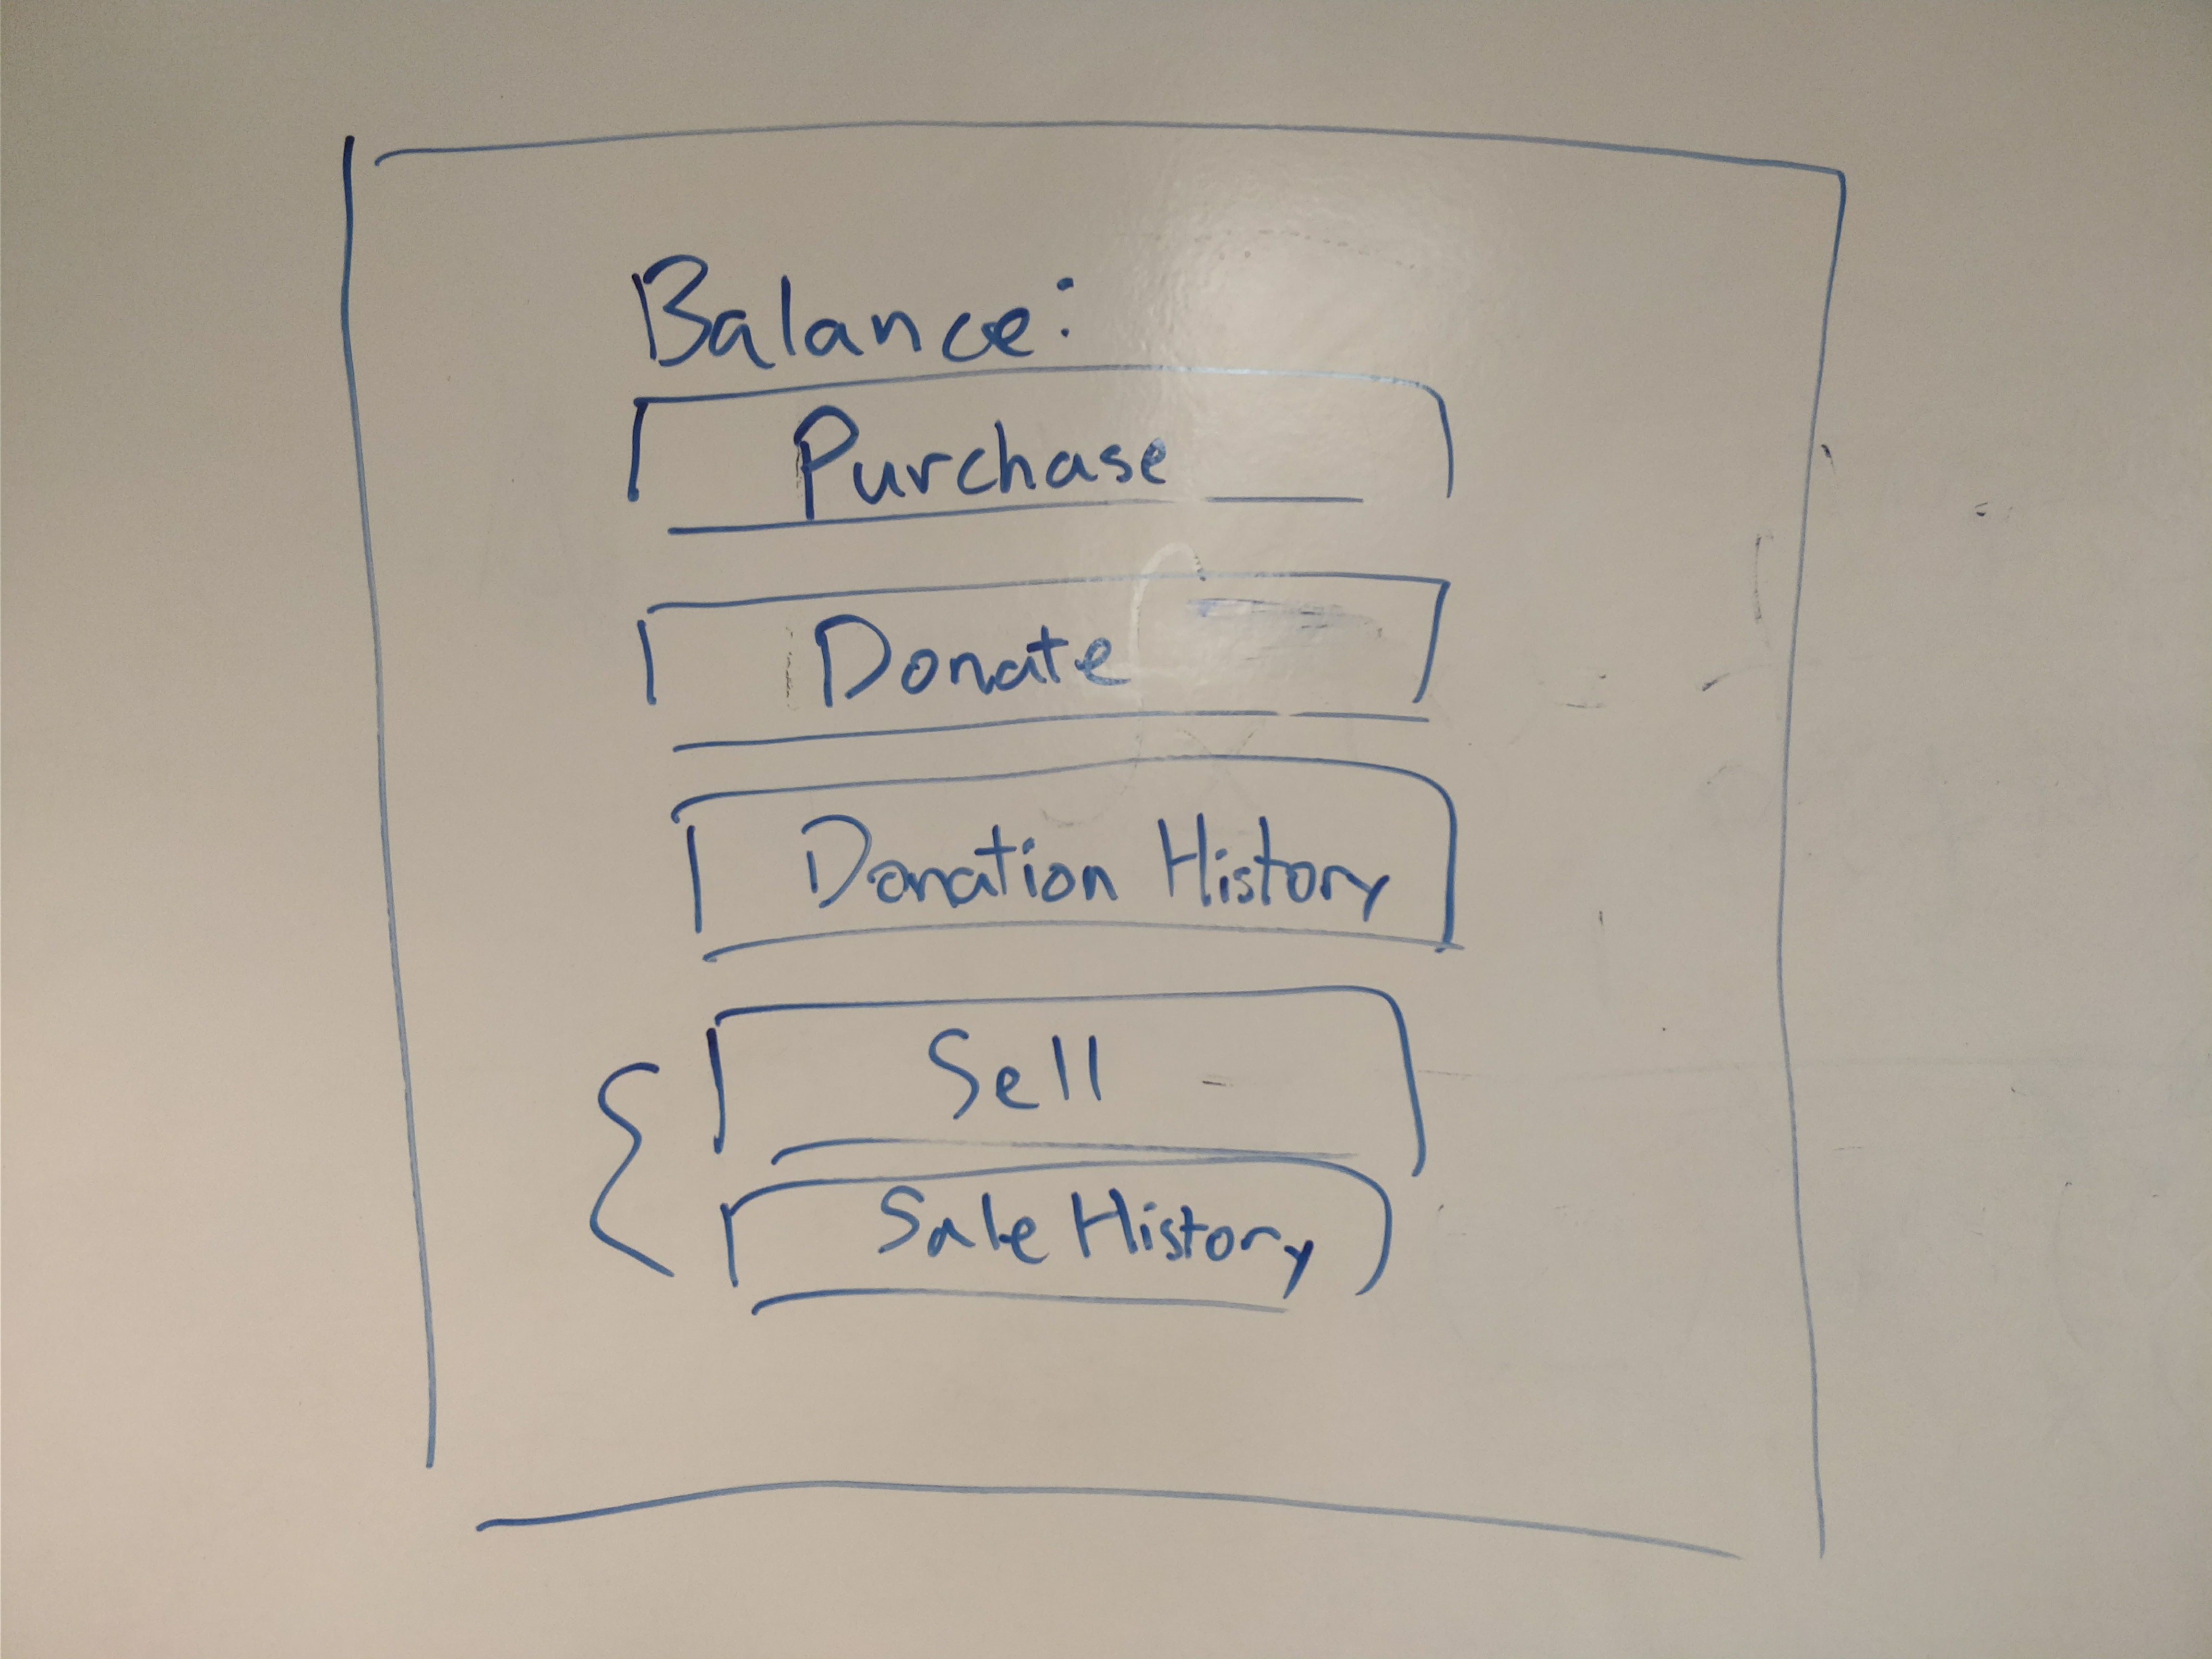 Balance:
Purchase
Donate
Donation History
Sell
Sale History